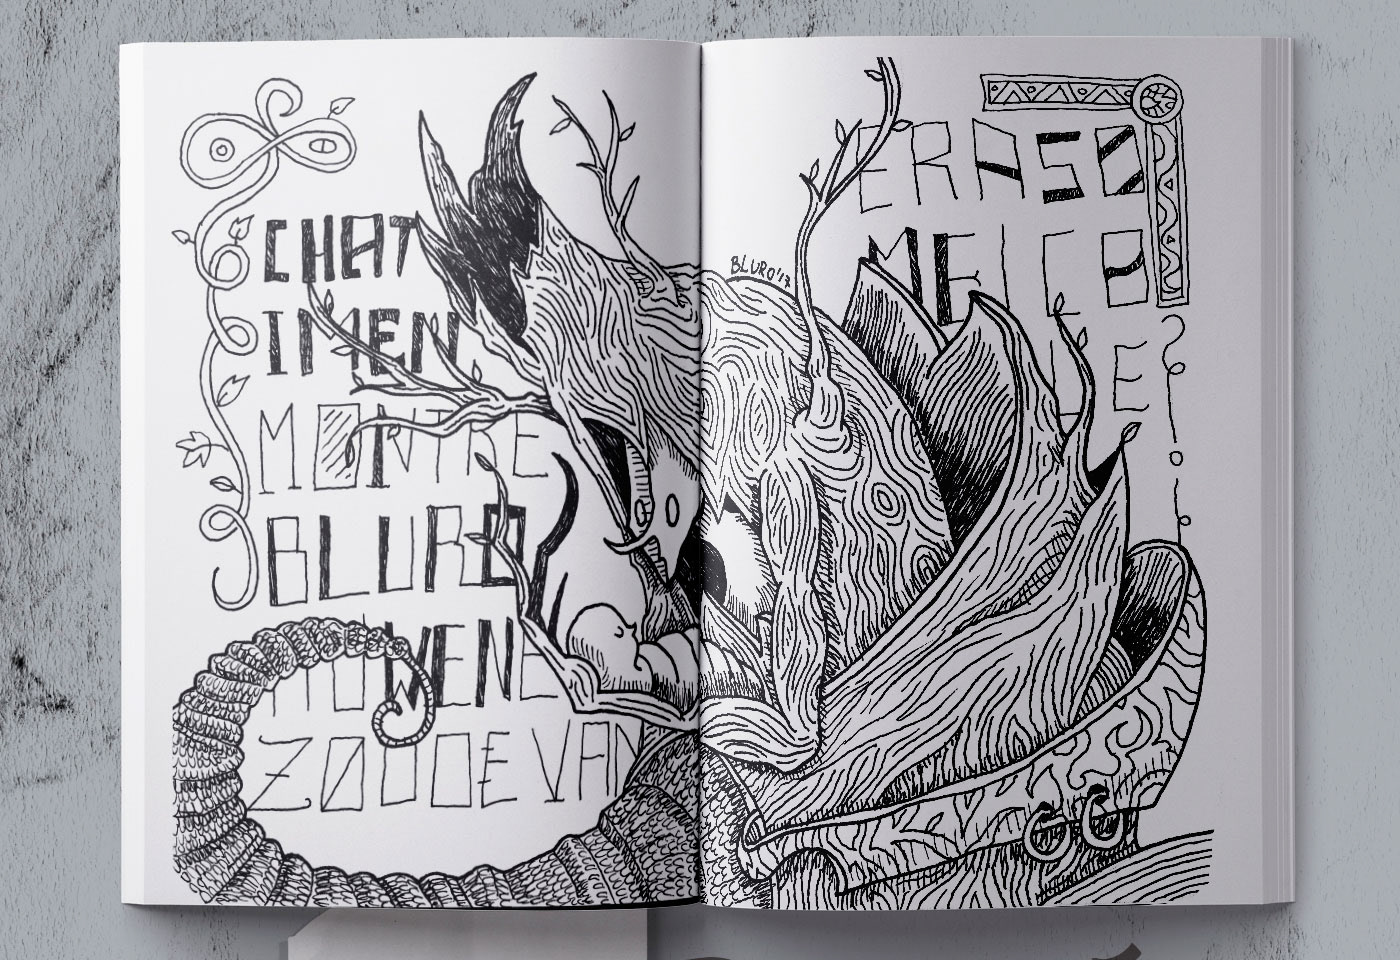 CHAT
IMEN
MONTRE
BLURO
ZOOOEVAN
BLURO'17
ERASO
MEICO
LE